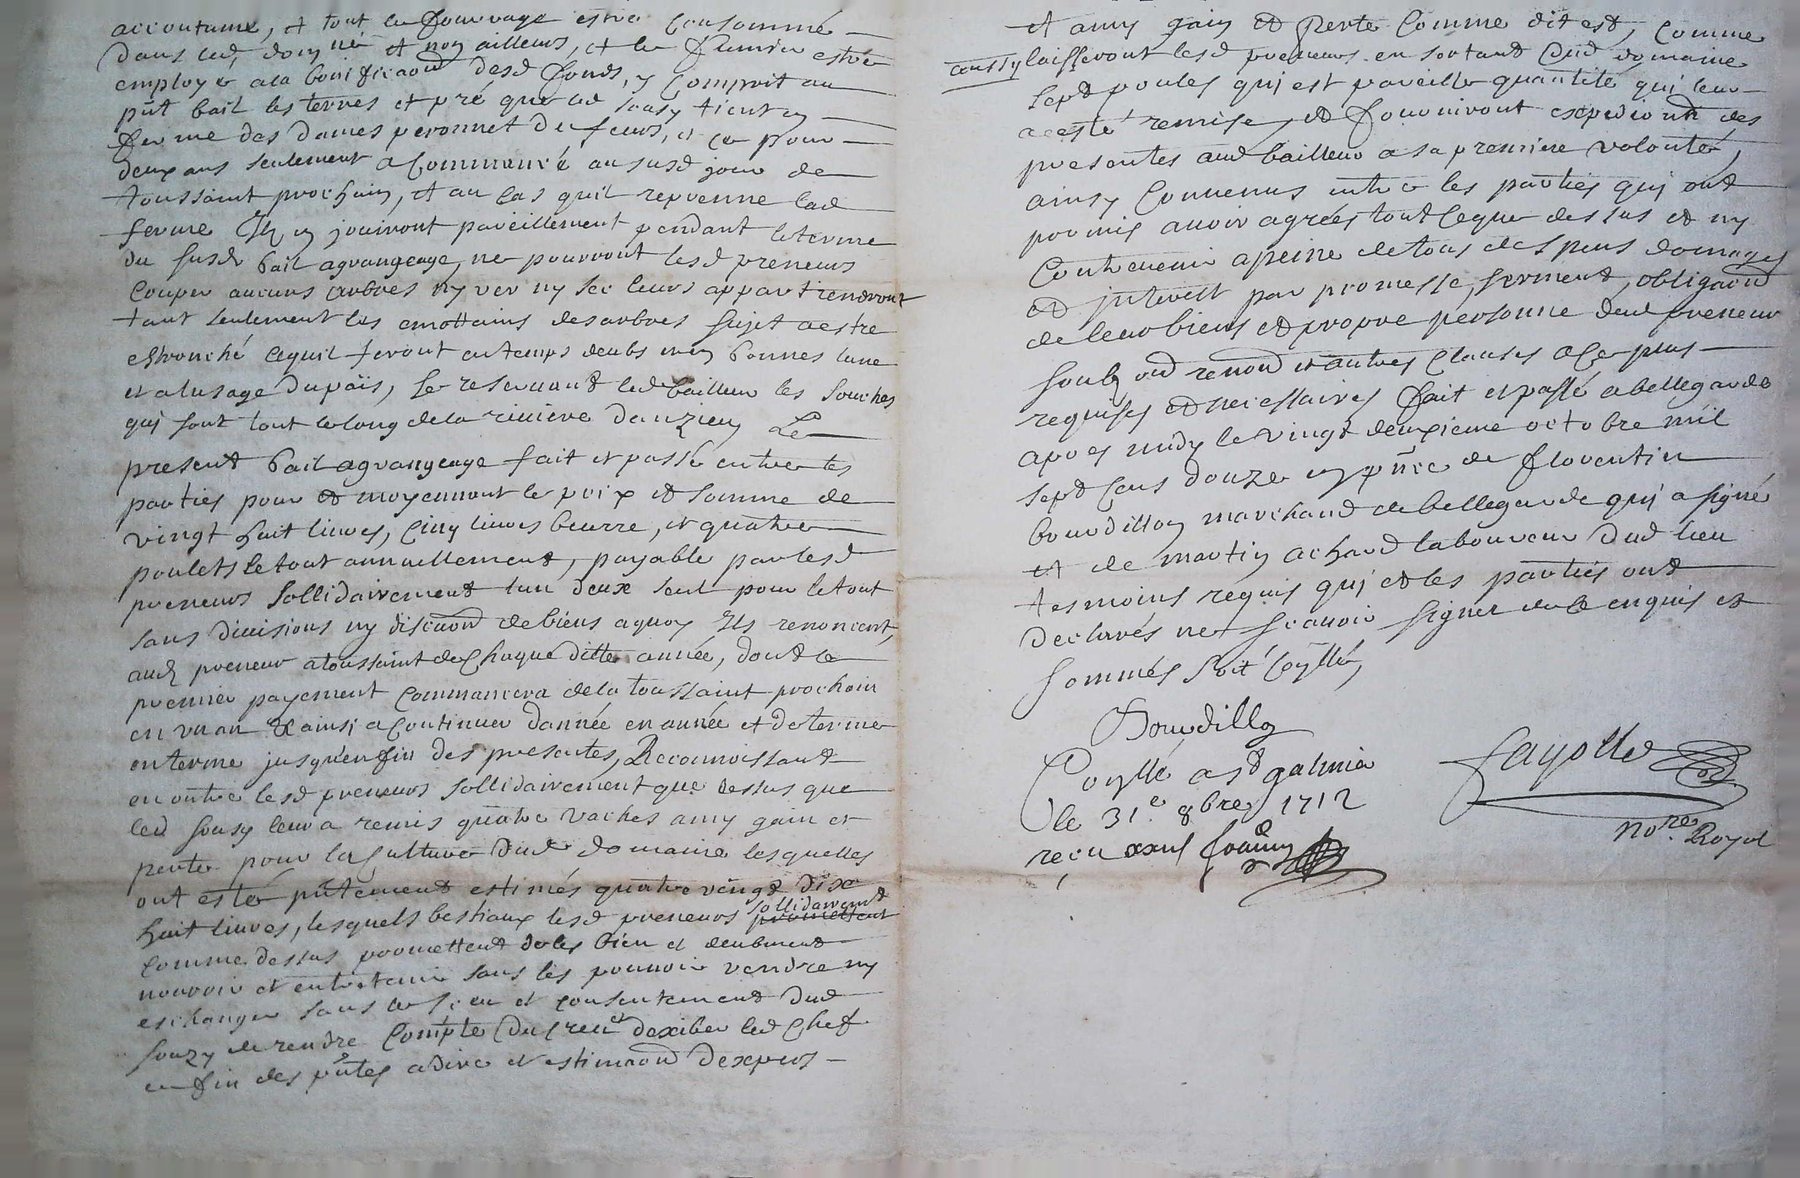 accoutumé, et tout le fourrage estre consommé
dans led. domne et non ailleurs, et le fumier estre
employé a la bonifficaon desd fonds, y compris au
pnt bail les terres et pré que led sousy tient en
ferme des dames peronnet de feurs, et ce pour
deux ans seulement a commancé au susd jour de
toussaint prochain, et au cas quil reprenne lad
ferme Ils en jouiront pareillement pendant le terme
du susd bail agrangeage, ne pourront lesd preneurs
couper aucuns arbres ny ver ny sec leurs appartiendront
tant seulement les emottains des arbres sujet a estre
estronché lequil feront en temps deubs en bonnes lune
et a lusage du païs, se reservant led bailleur les souches
qui sont tout le long de la riviere danzieu Le
present bail agrangeage fait et passé entre les
parties pour et moyennant le prix et somme de
vingt huit livres, cinq livres beurre, et quatre
poulets le tout annuellement, payable par lesd
preneurs sollidairement lun deux seul pour le tout
sans divisions ny discuon de biens a quoy Ils renoncent,
aud preneur a toussaint de chaque ditte année, dont le
premier payement commancera de la toussaint prochain
en un an & ainsi a continuer dannée en année et de terme
en terme jusqu'en fin des presentes, Reconnoissant
en outre lesd preneurs sollidairement que dessus que
led sousy leur a remis quatre vaches a my gain et
perte pour la culture dud domaine lesquelles
ont estés pntement estimés quatre vingt dix
huit livres, lesquels bestiaux lesd preneurs sollidairemt
comme dessus promettent de les bien et deubment
nourrir et entretenir sans les pouvoir vendre ny
eschanger sans le sceu et consentement dud
souzy de rendre compte du creu et dexiber led chef
en fin des pntes a dire et estimaon dexpers
et a my gain et perte comme dit est, comme
aussy laisseront lesd preneurs en sortant dud domaine
sept poules qui est pareille quantité qui leur
a esté remise, et fourniront expedion des
presentes aud bailleur a sa premiere volonté,
ainsy convenus entre les parties qui ont
promis avoir agrées tout ceque dessus et ny
contrevenir a peine de tous despens domages
et interest par promesse, serment, obligaon
de leur biens et propre personne dud preneur
renon et autres clauses a ce plus
requises et necessaires fait et passé a bellegarde
apres midy le vingt deuxieme octobre mil
sept cens douze en pnce de florentin
bourdillon marchand de bellegarde qui a signé
et de martin achard laboureur dud lieu
tesmoins requis qui et les parties ont
declarés ne scavoir signer de ce enquis et
sommés soit coyllé,
Bourdillon
Coyllé a st galmier
le 31e. 8bre 1712
reçu
fayolle
nore. Royal